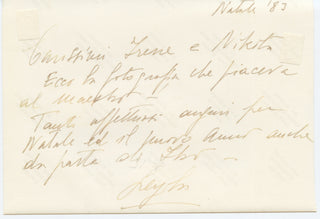 Natale '83
Carissimi Irene e Nikita
Ecco la fotografia che piaceva
al maestro -
Tanti affettuosi auguri per
Natale ed il nuovo Anno anche
da parte di